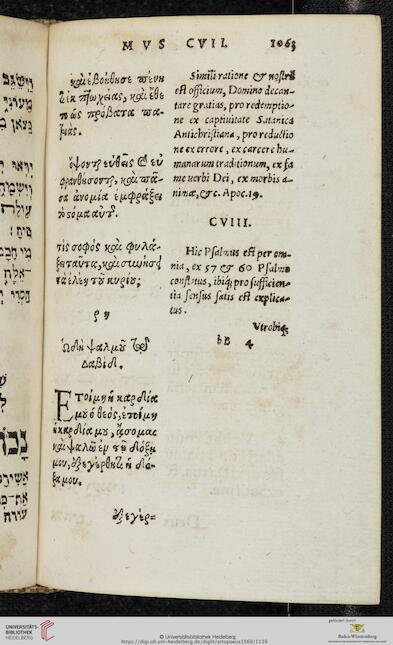 MVS CVII. 1063
καὶ ἐβοήθησε πένη
τι ἐκ πτωχείας, καὶ ἔθε
το ὡς πρόβατα πα-
τριάς.
ὄψονται εὐθεῖς καὶ εὐ
φρανθήσονται, καὶ πᾶ-
σα ἀνομία ἐμφράξει
τὸ στόμα αὐτῆς.
τίς σοφὸς καὶ φυλά-
ξει ταῦτα, καὶ συνήσει
τὰ ἐλέη τοῦ κυρίου;
ρη
Ὠδὴ ψαλμοῦ τῷ
Δαβίδ.
ΕΤοίμη ἡ καρδία
μου ὁ θεὸς, ἑτοίμη
ἡ καρδία μου, ᾄσομαι
καὶ ψαλῶ ἐν τῇ δόξῃ
μου, ἐξεγέρθητι ἡ δό-
ξα μου.
ἐξεγερ=
Simili ratione & nostrū
est officium, Domino decan-
tare gratias, pro redemptio-
ne ex captiuitate Satanica
Antichristiana, pro reductio
ne ex errore, ex carcere hu-
manarum traditionum, ex fa
me uerbi Dei, ex morbis a-
nimæ, &c. Apoc. 19.
CVIII.
Hic Psalmus est per om-
nia, ex 57 & 60 Psalmo
constitutus, ibiq; pro sufficien-
tia sensus satis est explica-
tus.
Vtrobiq;
bB 4
UNIVERSITÄTS-
BIBLIOTHEK
HEIDELBERG
© Universitätsbibliothek Heidelberg
https://digi.ub.uni-heidelberg.de/diglit/artopoeus1569/1139
gefördert durch
Baden-Württemberg